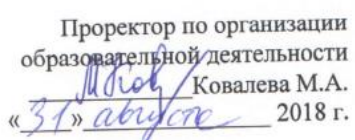 Проректор по организации
образовательной деятельности
Ковалева М.А.
«31» августа 2018 г.